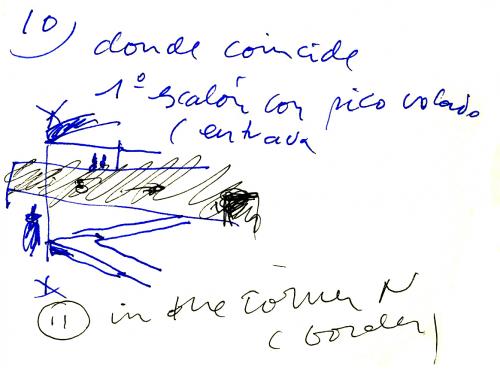 10)
donde coincide
1º escalón con pico volado
(entrava
11 in the corner N
(border)